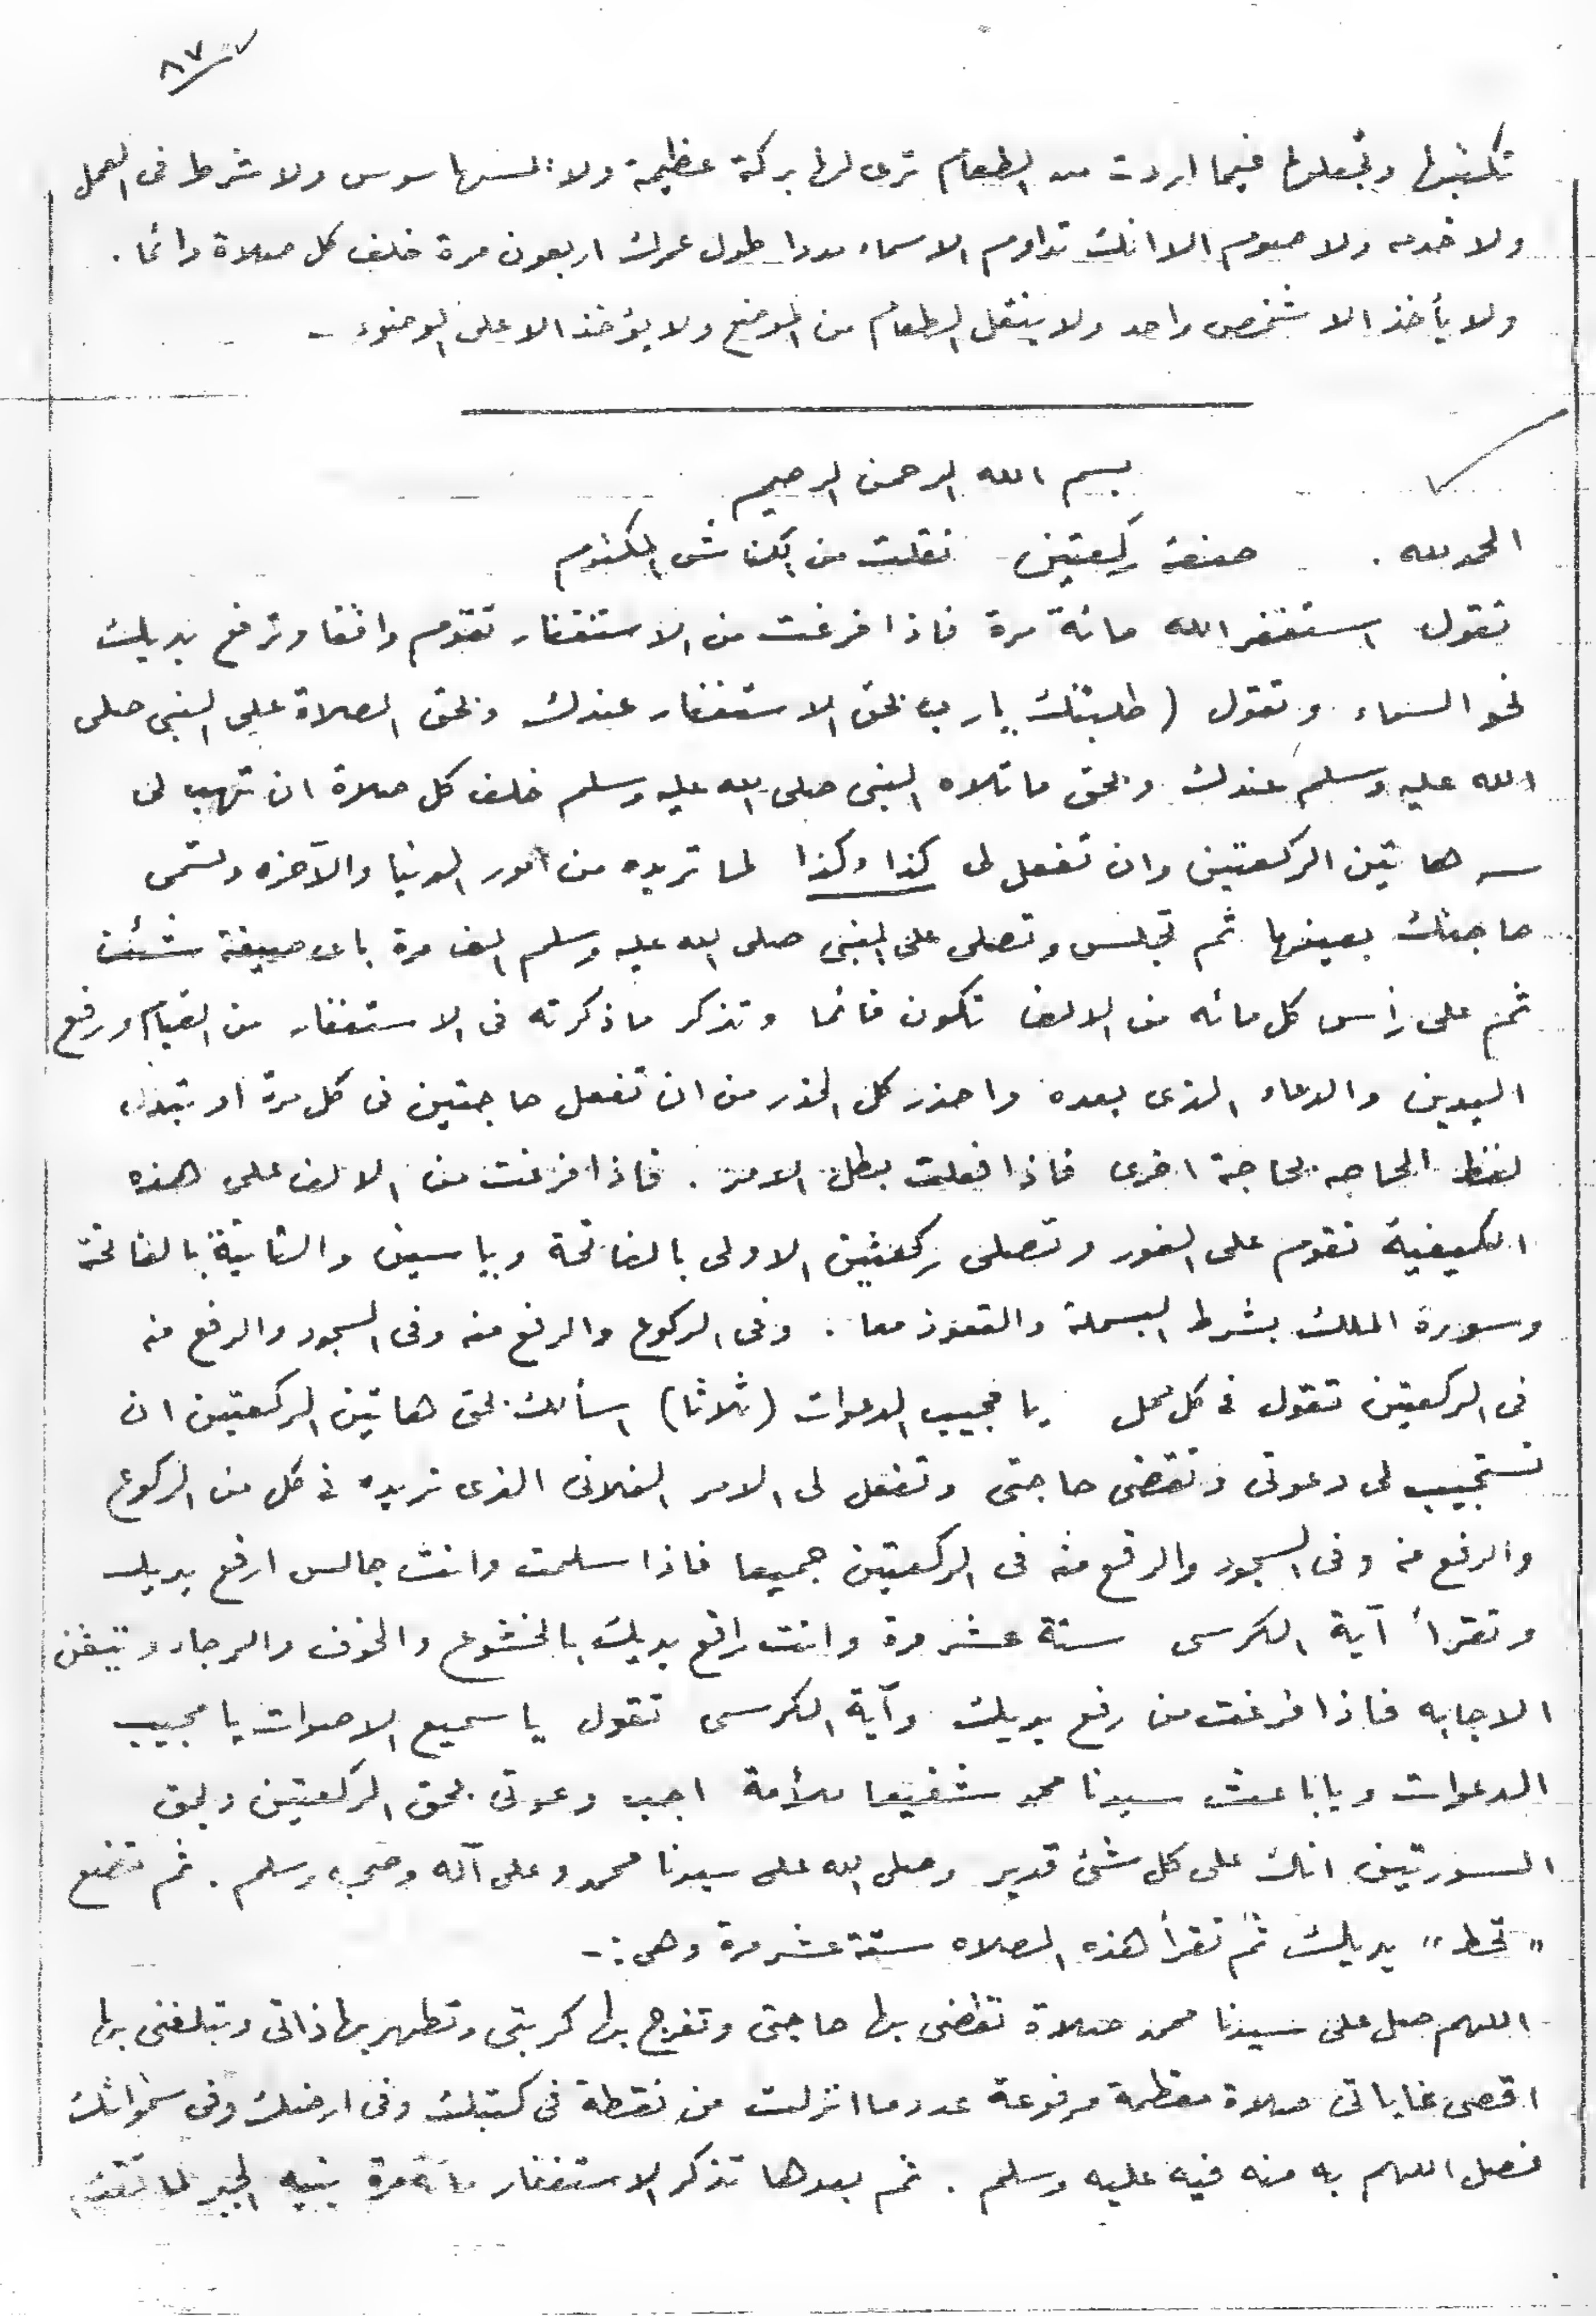 ٨٧
تكتبها وتجعلها فيما اردت من الطعام ترى لها بركة عظيمة ولا يمسها سوس ولا شرط فى العمل
ولا خدمه ولا صوم الا انك تداوم الاسماء طول عمرك اربعون مرة خلف كل صلاة دائما .
ولا يأخذ الا شخص واحد ولا ينتقل الطعام من الموضع ولا يؤخذ الا على الوضوء -
بسم الله الرحمن الرحيم
الحمد لله . صفة ركعتين نقلت من الكناش المكتوم
تقول استغفر الله مائة مرة فاذا فرغت من الاستغفار تقوم واقفا وترفع يديك
نحو السماء وتقول ( طلبتك يارب بحق الاستغفار عندك وبحق الصلاة على النبى صلى
الله عليه وسلم عندك وبحق ما تلاه النبى صلى الله عليه وسلم خلف كل صلاة ان تهب لى
سر هاتين الركعتين وان تفعل لى كذا وكذا لما تريده من امور الدنيا والآخره وتسمى
حاجتك بعينها ثم تجلس وتصلى على النبى صلى الله عليه وسلم الف مرة باى صيغة شئت
ثم على رأس كل مائه من الالف تكون قائما وتذكر ما ذكرته فى الاستغفار من القيام ورفع
اليدين والدعاء الذى بعده واحذر كل الحذر من ان تفعل حاجتين فى كل مرة او تبدل
لفظ الحاجه بحاجة اخرى فاذا فعلت بطل الامر . فاذا فرغت من الالف على هذه
الكيفية تقوم على الفور وتصلى ركعتين الاولى بالفاتحة وياسين والثانية بالفاتحة
وسورة الملك بشرط البسملة والتعوذ معا . وفى الركوع والرفع منه وفى السجود والرفع منه
فى الركعتين تقول فى كل محل يا مجيب الدعوات (ثلاثا) اسألك بحق هاتين الركعتين ان
تستجيب لى دعوتى وتقضى حاجتى وتفعل لى الامر الفلانى الذى تريده فى كل من الركوع
والرفع منه وفى السجود والرفع منه فى الركعتين جميعا فاذا سلمت وانت جالس ارفع يديك
وتقرأ آية الكرسى ستة عشر مرة وانت رافع يديك بالخشوع والخوف والرجاء وتيقن
الاجابه فاذا فرغت من رفع يديك وآية الكرسى تقول يا سميع الاصوات يا مجيب
الدعوات ويا باعث سيدنا محمد شفيعا للأمة اجب دعوتى بحق الركعتين وبحق
السورتين انك على كل شئ قدير وصلى الله على سيدنا محمد وعلى آله وصحبه وسلم . ثم تضع
" تحط " يديك ثم تقرأ هذه الصلاه ستة عشر مرة وهى :-
اللهم صل على سيدنا محمد صلاة تقضى بها حاجتى وتفرج بها كربتى وتطهر بها ذاتى وتبلغنى بها
اقصى غاياتى صلاة معظمة مرفوعة عدد ما انزلت من نقطة فى كتبك وفى ارضك وفى سمواتك
فصل اللهم به منه فيه عليه وسلم . ثم بعدها تذكر الاستغفار مائة مرة بنية الجبر لما